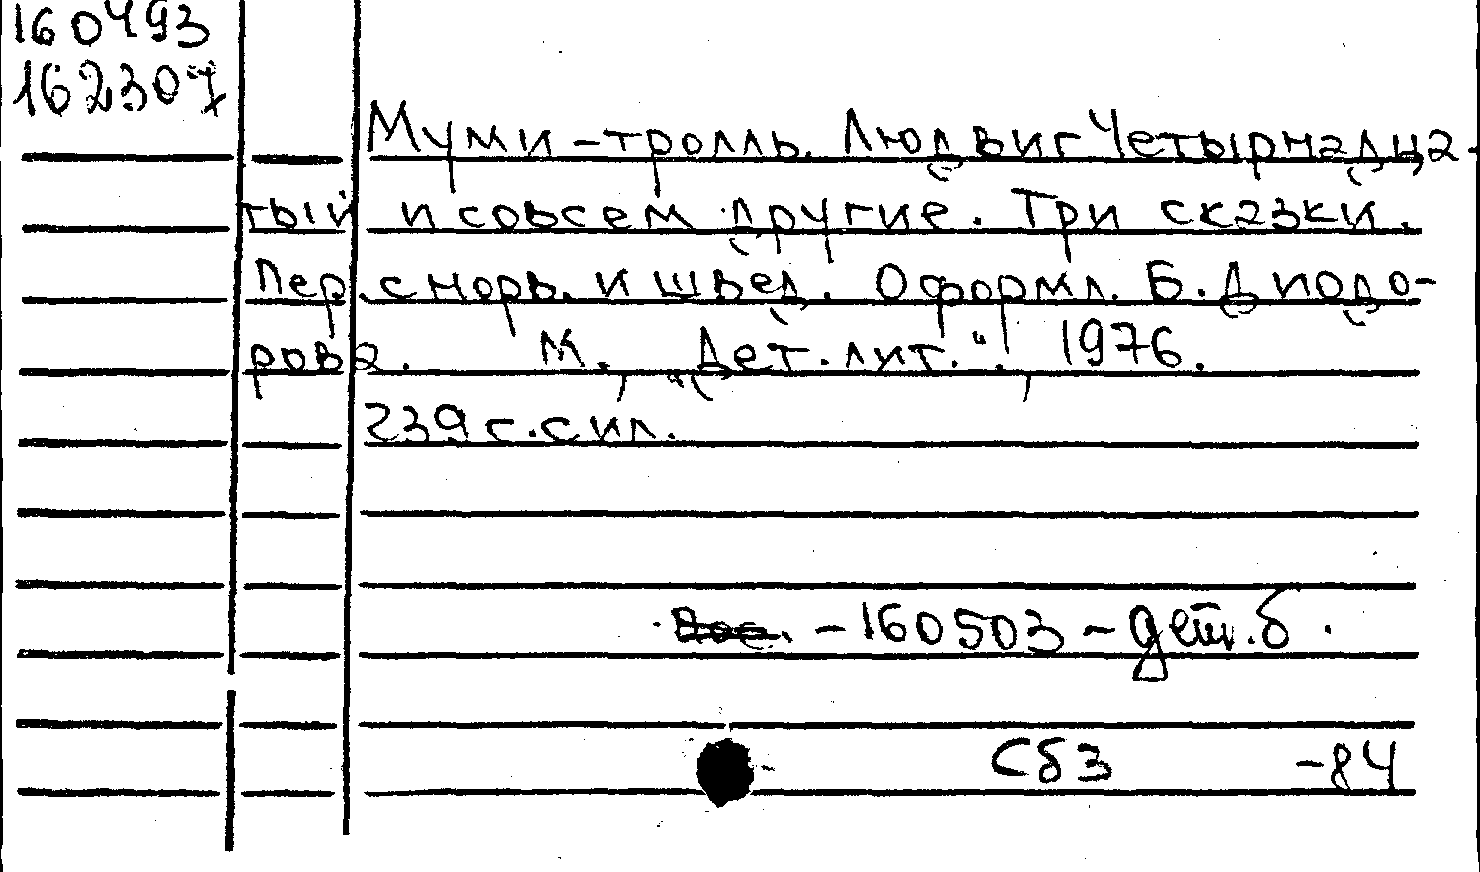 160493
162307
Муми-тролль. Людвиг Четырнадца-
тый и совсем другие. Три сказки.
Пер. с норв. и швед. Оформл. Б. Диодо-
рова. М., „Дет. лит.“, 1976.
239 с. с ил.
- 160503 - дет. б.
С63 -84